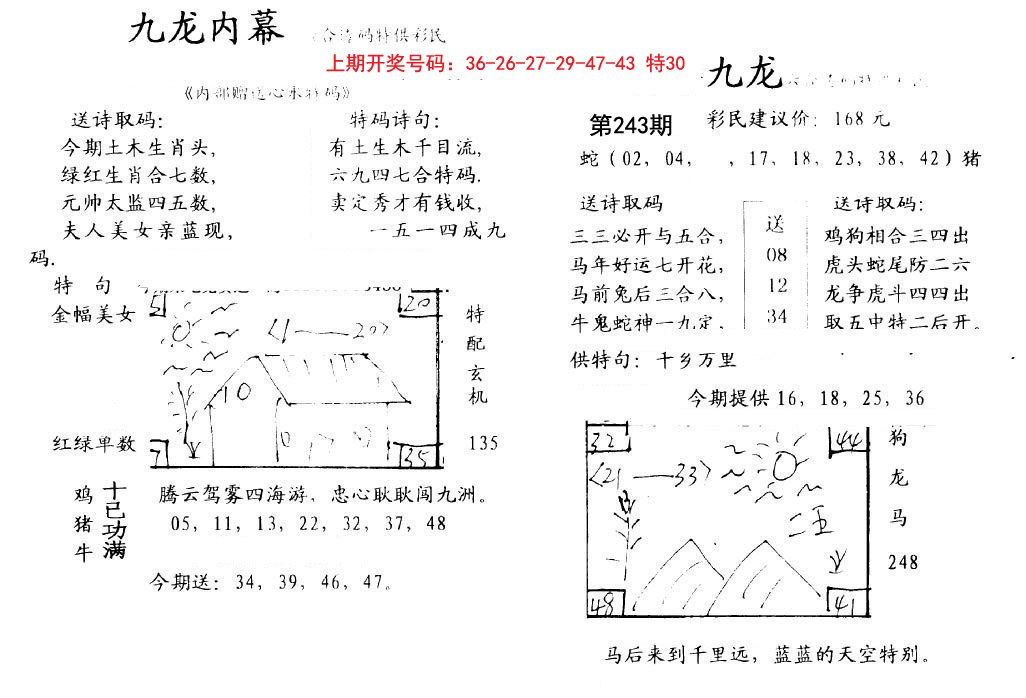 九龙内幕
上期开奖号码：36-26-27-29-47-43 特30
《内部赠送心水特码》
送诗取码：
今期土木生肖头，
绿红生肖合七数，
元帅太监四五数，
夫人美女亲蓝现，
码.
特码诗句：
有土生木千目流，
六九四七合特码.
卖定秀才有钱收，
一五一四成九
特 句
金幅美女
红绿单数
20
〈1——20〉
10
35
特
配
玄
机
135
鸡
猪
牛
十己功满
腾云驾雾四海游，忠心耿耿闯九洲。
05，11，13，22，32，37，48
今期送：34，39，46，47。
九龙
第243期
彩民建议价：168元
蛇（02，04， ，17，18，23，38，42）猪
送诗取码
三三必开与五合，
马年好运七开花，
马前兔后三合八，
牛鬼蛇神一九定，
送
08
12
34
送诗取码：
鸡狗相合三四出
虎头蛇尾防二六
龙争虎斗四四出
取五中特二后开。
供特句：十乡万里
今期提供16，18，25，36
32
44
〈21——33〉
二王
48
41
狗
龙
马
248
马后来到千里远，蓝蓝的天空特别。